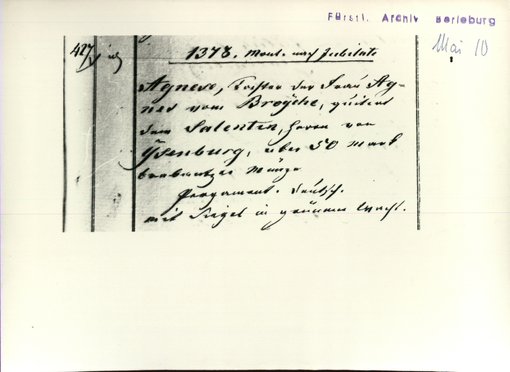 Fürstl. Archiv Berleburg
Mai 10
427
1378. Mont. nach Jubilate
Agnese, Tochter der Frau Ag-
nes vom Broÿche, quitirt
dem Salentin, Herrn von
Ÿsenburg, über 50 mark
brabantzer Münze
Pergament. Deutsch.
mit Siegel in grünem Wachs.